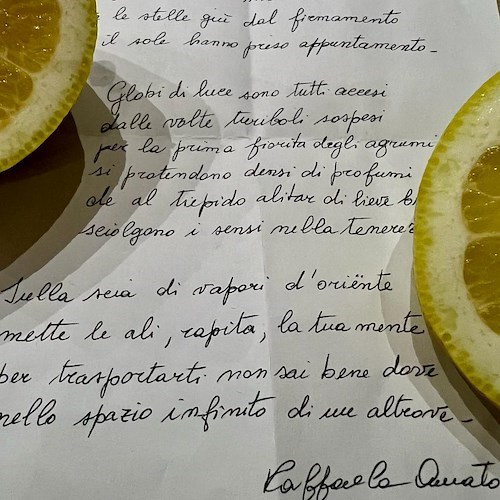 le stelle giù dal firmamento
il sole hanno preso appuntamento -
Globi di luce sono tutti accesi
dalle volte turiboli sospesi
per la prima fiorita degli agrumi
si protendono densi di profumi
che al tiepido alitar di lieve
sciolgono i sensi nella
Sulla scia di vapori d'oriënte
mette le ali, rapita, la tua mente
per trasportarti non sai bene dove
nello spazio infinito di un altrove -
Raffaela Amato